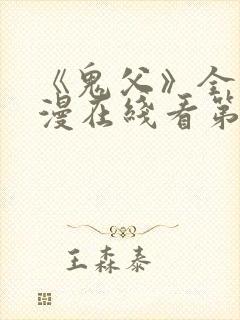 《鬼父》全
漫在线看第
王森泰